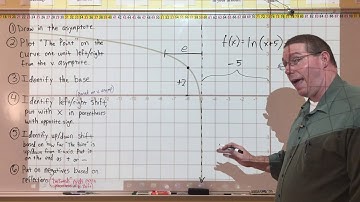 ① Draw in the asymptote.
② Plot The Point on the
curve one unit left/right
from the v. asymptote.
③ Identify the base
(based on c count)
④ Identify left/right shift,
put with X in parentheses
with opposite sign.
⑤ Identify up/down shift
based on how far "the turn" is
up/down from X-axis. Put in
on the end as + or -.
⑥ Put on negatives based on
reflections
e
+2
-5
f(x)=ln(x+5)